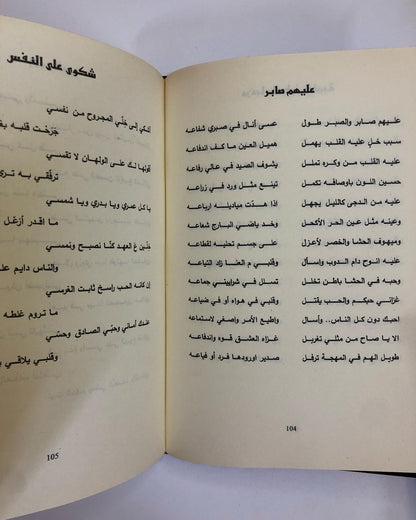 عليهم صابر
عليهم صابر والصبر طول عسى أنال في صبري شفاعه
سبب خلٍ عليه القلب يهمل هميل العين ما كف اندفاعه
عليه القلب من وكره تمثل يشوف الصيد في عالي رفاعه
حسين اللون باوصافه تكمل تينع مثل ورد في زراعه
عليه من الدجى كالليل يهمل اذا هذت مياديله إرباعه
وعينه مثل عين الحر الأكحل وخد ياضي البارج شعاعه
وميهوف الحشا والخصر لأعزل على جسم تحليه لقطاعه
عليه النوح دام الدوب واسأل وقلبي م العنا زاد التياعه
وحبه في الحشا باطن تخلل تسلل في شراييني جماعه
غزاني حبكم والحب يقتل وقلبي في هواه أو في ضياعه
احبك دون كل الناس.. وأسأل واطيع الأمر واصغي لاستماعه
الا يا صاح من مثلي تغربل غزاه العشق قوه واندفاعه
طويل الهم في المهجة ترفل صدير اورودها فرد أو فياعه
104
شكوى على النفس
أشكي إلى خلّي المجروح من نفسي
جَرَحْت قلبه
أقولها لك على الولهان لا تقسي
ترفّقي به
يا كل عمري ويا بدري ويا شمسي
ما اقدر أزعّل
خنّن ع العهد كنّا نصبح ونمسي
والناس دايم
إن كانه الحب راسخ ثابت الغرسي
ما تروم غلطه
عندك أماني وحبّي الصادق وحسّي
وقلبي يلاقي
105